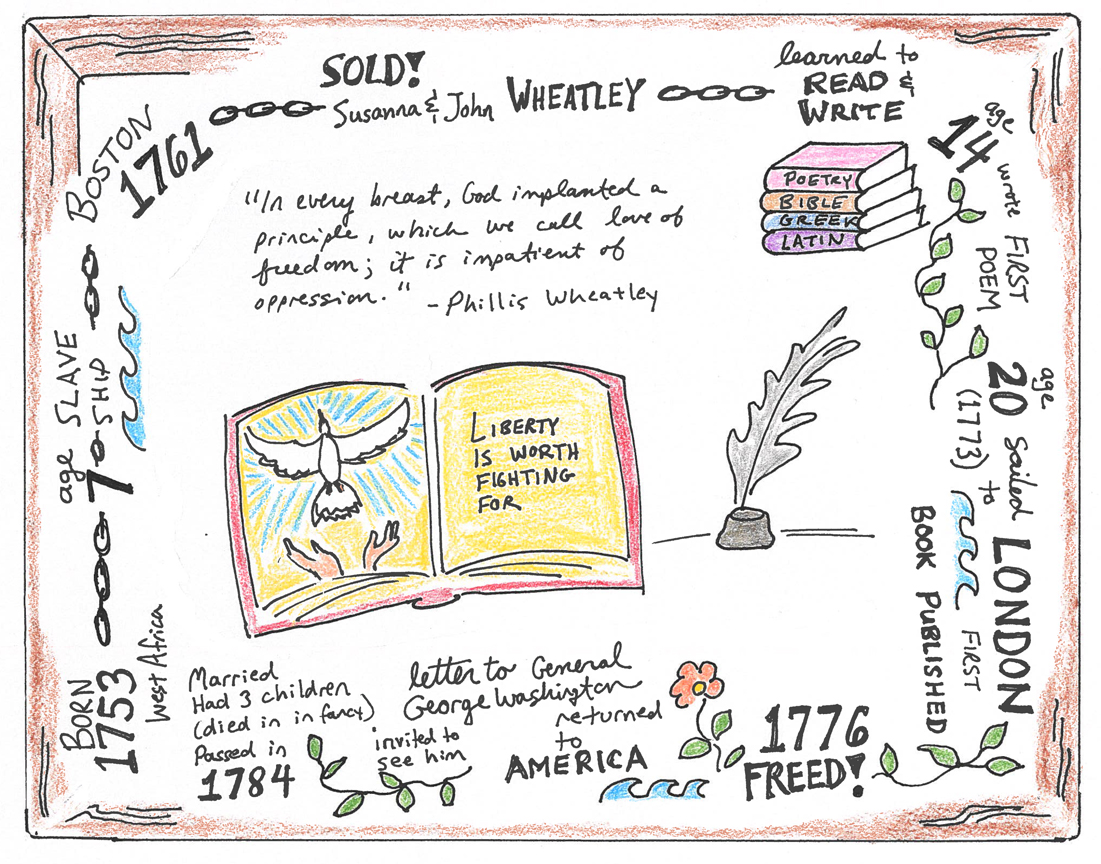 BORN
1753
West Africa
age
7
SLAVE
SHIP
BOSTON
1761
SOLD!
Susanna & John WHEATLEY
learned to
READ &
WRITE
POETRY
BIBLE
GREEK
LATIN
age
14
wrote FIRST
POEM
age
20 sailed
(1773) to
LONDON
FIRST
BOOK PUBLISHED
1776
FREED!
returned
to
AMERICA
letter to General
George Washington
invited to
see him
Married
Had 3 children
(died in infancy)
Passed in
1784
"In every breast, God implanted a
principle, which we call love of
freedom; it is impatient of
oppression."
-Phillis Wheatley
LIBERTY
IS WORTH
FIGHTING
FOR